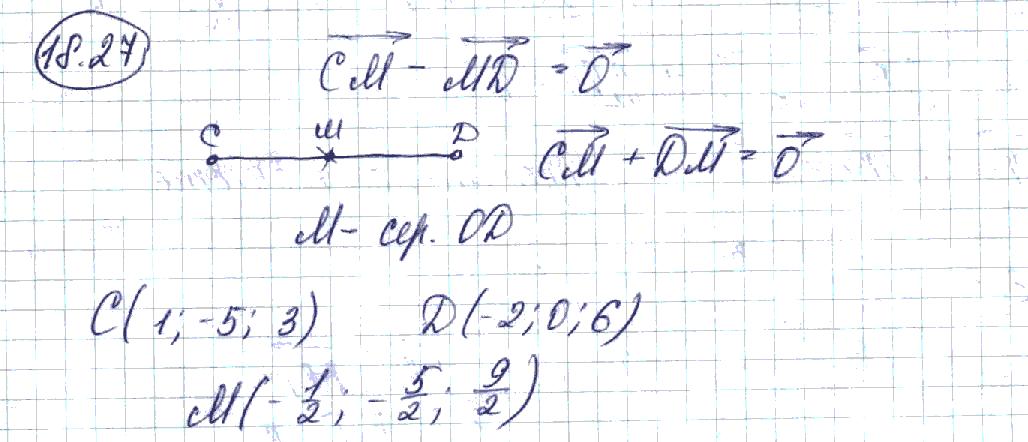 18.27
CM⃗ - MD⃗ = 0⃗
C M D
CM⃗ + DM⃗ = 0⃗
M - сер. OD
C(1; -5; 3) D(-2; 0; 6)
M(-1/2; -5/2; 9/2)